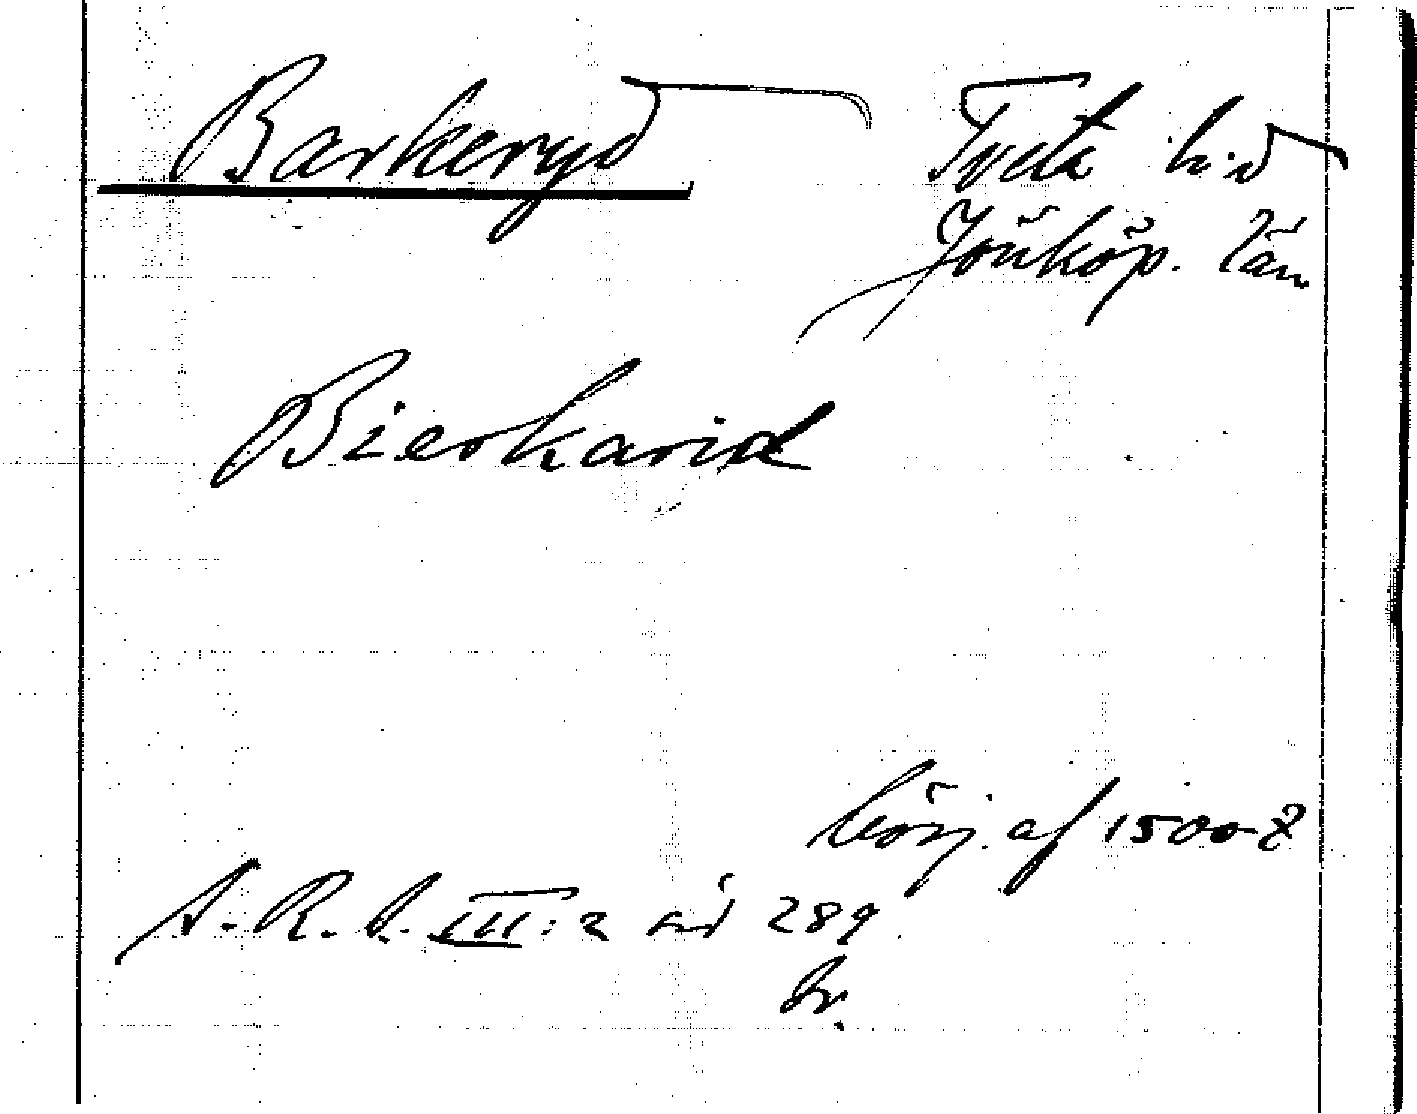 Barkeryd Tveta h:d
Jönköp. län
Bierkarid
börj. af 1500-t
S. R. P. III:2 sid 289
Or.